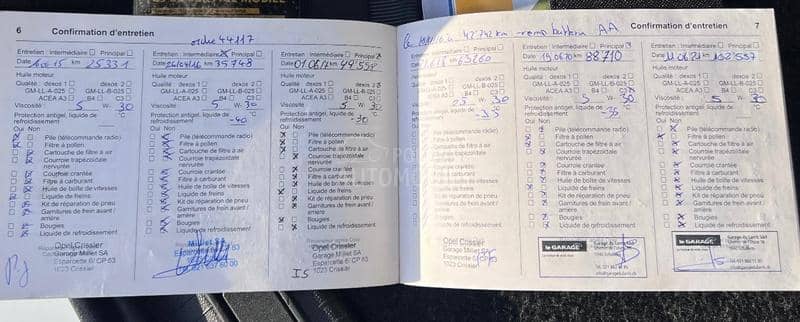 6 Confirmation d'entretien
Entretien : Intermédiaire Principal
Date km 25331
Huile moteur
Qualité : dexos 1 dexos 2
GM-LL-A-025 GM-LL-B-025
ACEA A3 B4 C3
Viscosité 5 W 30
Protection antigel, liquide de refroidissement °C
Oui Non
Pile (télécommande radio)
Filtre à pollen
Cartouche de filtre à air
Courroie trapézoïdale nervurée
Courroie crantée
Filtre à carburant
Huile de boîte de vitesses
Liquide de freins
Kit de réparation de pneu
Garnitures de frein avant / arrière
Bougies
Liquide de refroidissement
Opel Crissier
Garage Millet SA
Esparcette 6/ CP 63
1023 Crissier
44117
Entretien : Intermédiaire Principal
Date km 35748
Huile moteur
Qualité : dexos 1 dexos 2
GM-LL-A-025 GM-LL-B-025
ACEA A3 B4 C3
Viscosité 5 W 30
Protection antigel, liquide de refroidissement -40 °C
Oui Non
Pile (télécommande radio)
Filtre à pollen
Cartouche de filtre à air
Courroie trapézoïdale nervurée
Courroie crantée
Filtre à carburant
Huile de boîte de vitesses
Liquide de freins
Kit de réparation de pneu
Garnitures de frein avant / arrière
Bougies
Liquide de refroidissement
Millet SA
Entretien : Intermédiaire Principal
Date km
Huile moteur
Qualité : dexos 1 dexos 2
GM-LL-A-025 GM-LL-B-025
ACEA A3 B4 C3
Viscosité 5 W 30
Protection antigel, liquide de refroidissement -30 °C
Oui Non
Pile (télécommande radio)
Filtre à pollen
Cartouche de filtre à air
Courroie trapézoïdale nervurée
Courroie crantée
Filtre à carburant
Huile de boîte de vitesses
Liquide de freins
Kit de réparation de pneu
Garnitures de frein avant / arrière
Bougies
Liquide de refroidissement
Opel Crissier
Garage Millet SA
Esparcette 6/ CP 63
1023 Crissier
Confirmation d'entretien 7
42742 km AA
Entretien : Intermédiaire Principal
63260
Huile moteur
Qualité : dexos 1 dexos 2
GM-LL-A-025 GM-LL-B-025
ACEA A3 B4 C3
Viscosité W 30
Protection antigel, liquide de refroidissement -35 °C
Oui Non
Pile (télécommande radio)
Filtre à pollen
Cartouche de filtre à air
Courroie trapézoïdale nervurée
Courroie crantée
Filtre à carburant
Huile de boîte de vitesses
Liquide de freins
Kit de réparation de pneu
Garnitures de frein avant / arrière
Bougies
Liquide de refroidissement
Opel Crissier
Garage Millet SA
Esparcette 6/ CP 63
1023 Crissier
Entretien : Intermédiaire Principal
Date 15.06.20 km 88710
Huile moteur
Qualité : dexos 1 dexos 2
GM-LL-A-025 GM-LL-B-025
ACEA A3 B4 C3
Viscosité 5 W 30
Protection antigel, liquide de refroidissement °C
Oui Non
Pile (télécommande radio)
Filtre à pollen
Cartouche de filtre à air
Courroie trapézoïdale nervurée
Courroie crantée
Filtre à carburant
Huile de boîte de vitesses
Liquide de freins
Kit de réparation de pneu
Garnitures de frein avant / arrière
Bougies
Liquide de refroidissement
le GARAGE
Entretien : Intermédiaire Principal
Date km 102557
Huile moteur
Qualité : dexos 1 dexos 2
GM-LL-A-025 GM-LL-B-025
ACEA A3 B4 C3
Viscosité 5 W 30
Protection antigel, liquide de refroidissement °C
Oui Non
Pile (télécommande radio)
Filtre à pollen
Cartouche de filtre à air
Courroie trapézoïdale nervurée
Courroie crantée
Filtre à carburant
Huile de boîte de vitesses
Liquide de freins
Kit de réparation de pneu
Garnitures de frein avant / arrière
Bougies
Liquide de refroidissement
le GARAGE